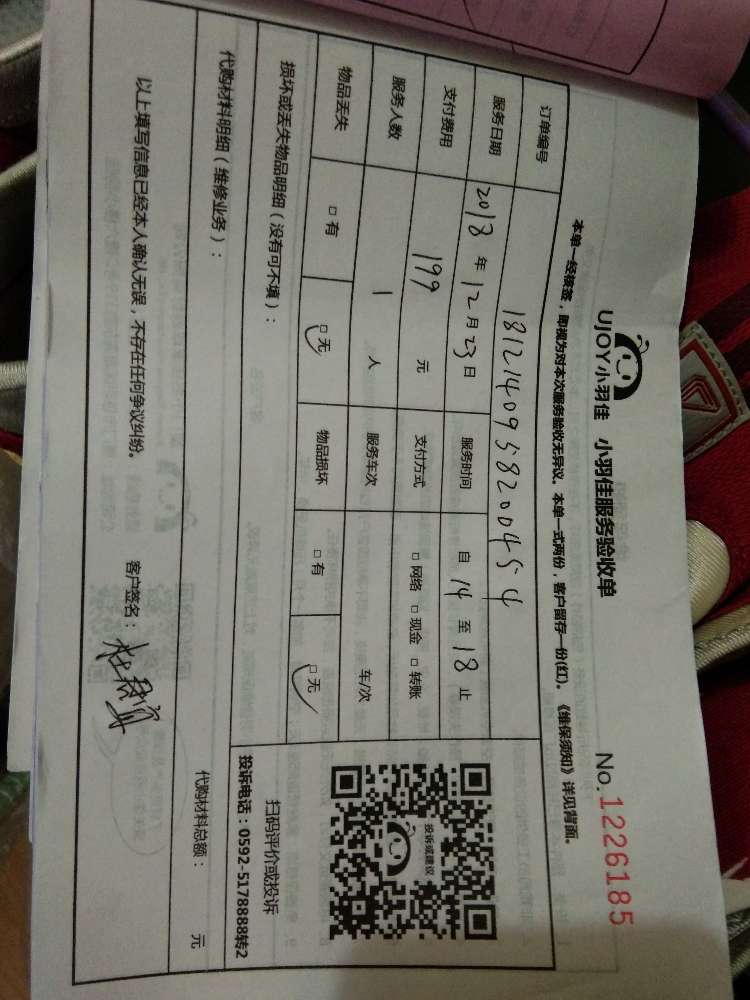 UJOY小羽佳 小羽佳服务验收单 No.1226185
本单一经核签，即视为对本次服务验收无异议。本单一式两份，客户留存一份(红)。《维保须知》详见背面。
订单编号 1812140958200454
服务日期 2018年12月23日 服务时间 自14至18止
支付费用 199元 支付方式 □网络 □现金 □转账
服务人数 1人 服务车次 车/次
物品丢失 □有 □无 物品损坏 □有 □无
损坏或丢失物品明细（没有可不填）：
投诉或建议
扫码评价或投诉
投诉电话：0592-5178888转2
代购材料明细（维修业务）：
代购材料总额： 元
以上填写信息已经本人确认无误，不存在任何争议纠纷。 客户签名：